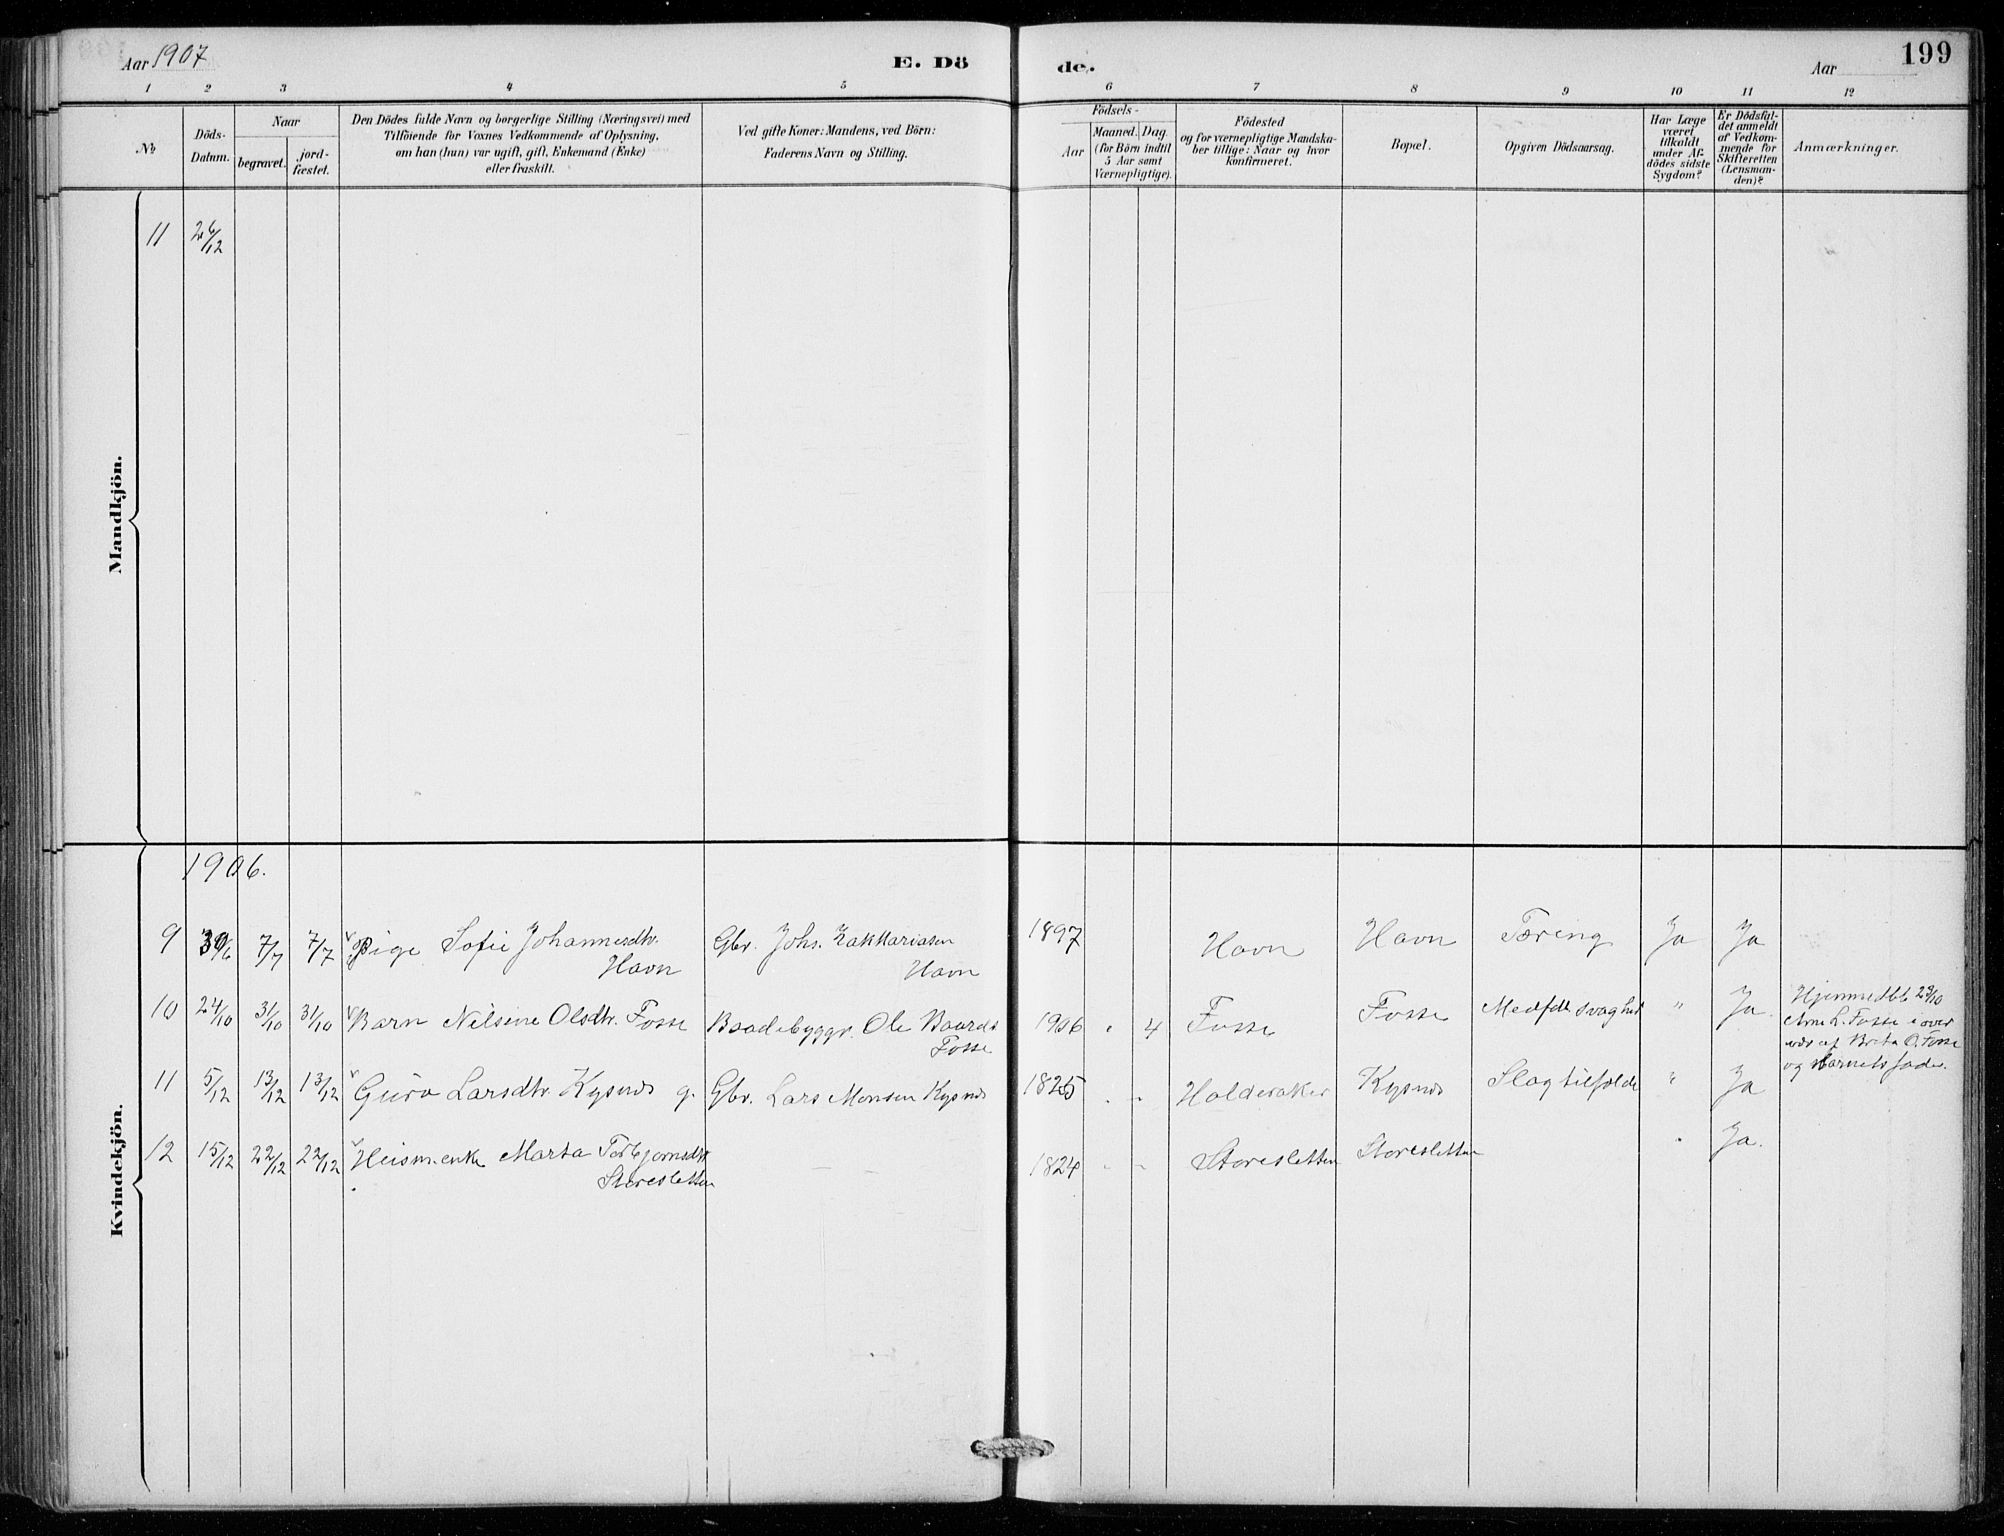 Aar 1907
E. Dö
de.
Aar
199
1 2 3 4 5 6 7 8 9 10 11 12
№
Döds-
Datum.
Naar
begravet.
jord-
fæstet.
Den Dödes fulde Navn og borgerlige Stilling (Næringsvei) med
Tilföiende for Voxnes Vedkommende af Oplysning,
om han (hun) var ugift, gift, Enkemand (Enke)
eller fraskilt.
Ved gifte Koner: Mandens, ved Börn:
Faderens Navn og Stilling.
Födsels-
Aar
Maaned. Dag.
(for Börn indtil
5 Aar samt
Værnepligtige).
Födested
og for værnepligtige Mandska-
ber tillige: Naar og hvor
konfirmeret.
Bopæl.
Opgiven Dödsaarsag.
Har Læge
været
tilkaldt
under Af-
dödes sidste
Sygdom?
Er Dödsfal-
det anmeldt
af Vedkom-
mende for
Skifteretten
(Lensman-
den)?
Anmærkninger.
Mandkjön.
11 26/12
Kvindekjön.
1906.
9 30/6 7/7 7/7 Pige Sofie Johannesdtr. Gbr. Johs. Zakkariasen 1897 Havn Havn Tæring Ja Ja
Havn Havn
10 24/10 31/10 31/10 Barn Nilsine Olsdtr. Fosse Baadebyggr. Ole Baards 1906 " 4 Fosse Fosse Medfdt svaghed " Ja. Hjemmedbt 23/10
Fosse Arne L. Fosse i over
vær af Brita O. Fosse
og barnets fader.
11 5/12 13/12 13/12 Guro Larsdtr. Kysnes g. Gbr. Lars Monsen Kysnes 1825 " " Halderaker Kysnes Slagtilfælde " Ja
12 15/12 22/12 22/12 Marta Torbjørnsdtr. 1824 " " Storesletten Storesletten " Ja.
Storesletten